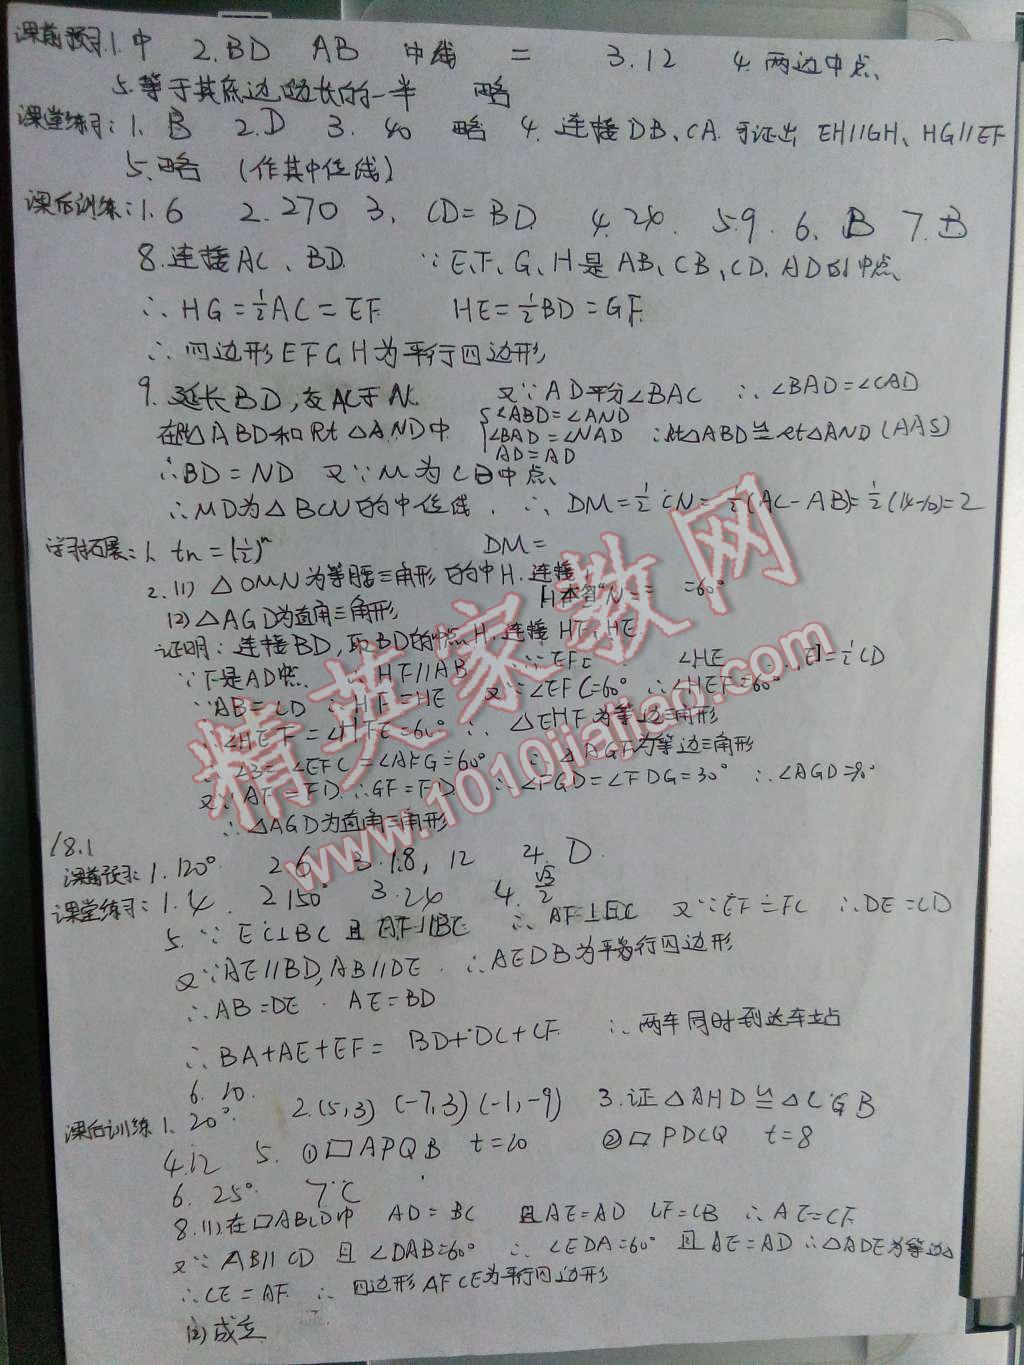 课前预习:1.中 2.BD AB 中线 = 3.12 4.两边中点
5.等于其底边边长的一半 略
课堂练习:1.B 2.D 3.40 略 4.连接DB、CA.可证出EH∥GH、HG∥EF
5.略(作其中位线)
课后训练:1.6 2.270 3.CD=BD 4.24. 5.9. 6.B 7.B
8.连接AC、BD. ∵E、F、G、H是AB、CB、CD、AD的中点
∴HG=½AC=EF. HE=½BD=GF.
∴四边形EFGH为平行四边形
9.延长BD,交AC于N. 又∵AD平分∠BAC ∴∠BAD=∠CAD
在Rt△ABD和Rt△AND中 {∠ABD=∠AND ∠BAD=∠NAD AD=AD ∴Rt△ABD≌Rt△AND(AAS)
∴BD=ND 又∵M为CB中点
∴MD为△BCN的中位线. ∴DM=½CN=½(AC-AB)=½(14-10)=2
学习拓展:1.tn=(½)ⁿ DM=
2.(1)△OMN为等腰三角形 的中H.连接 =60°
(2)△AGD为直角三角形
证明:连接BD,取BD的中点H,连接HF、HE.
∵F是AD中点 ∴HF∥AB ∠HE =½CD
∵AB=CD ∴HF=HE 又∵∠EFC=60° ∴∠HEF=60°
∴∠HEF=∠HFE=60° ∴△EHF为等边三角形
∠3=∠EFC=∠AFG=60° ∴△AGF为等边三角形
又∵AF=FD ∴GF=FD ∴∠FGD=∠FDG=30° ∴∠AGD=90°
∴△AGD为直角三角形
18.1
课前预习:1.120° 2.6 3.1.8,12 4.D.
课堂练习:1.4. 2.150° 3.24 4.√3/2
5.∵EC⊥BC且EF∥BC ∴AF⊥EC 又∵EF=FC ∴DE=CD
又∵AE∥BD,AB∥DE. ∴AEDB为平行四边形
∴AB=DE. AE=BD
∴BA+AE+EF=BD+DC+CF. ∴两车同时到达车站
6.10.
课后训练1.20° 2.(5,3)(-7,3)(-1,-9) 3.证△AHD≌△CGB
4.12 5.①▱APQB t=10 ②▱PDCQ t=8
6.25° 7.C
8.(1)在▱ABCD中 AD=BC 且AE=AD CF=CB ∴AE=CF.
又∵AB∥CD 且∠DAB=60° ∴∠EDA=60° 且AE=AD ∴△ADE为等边△
∴CE=AF. ∴四边形AFCE为平行四边形
(2)成立
精英家教网
www.1010jiajiao.com